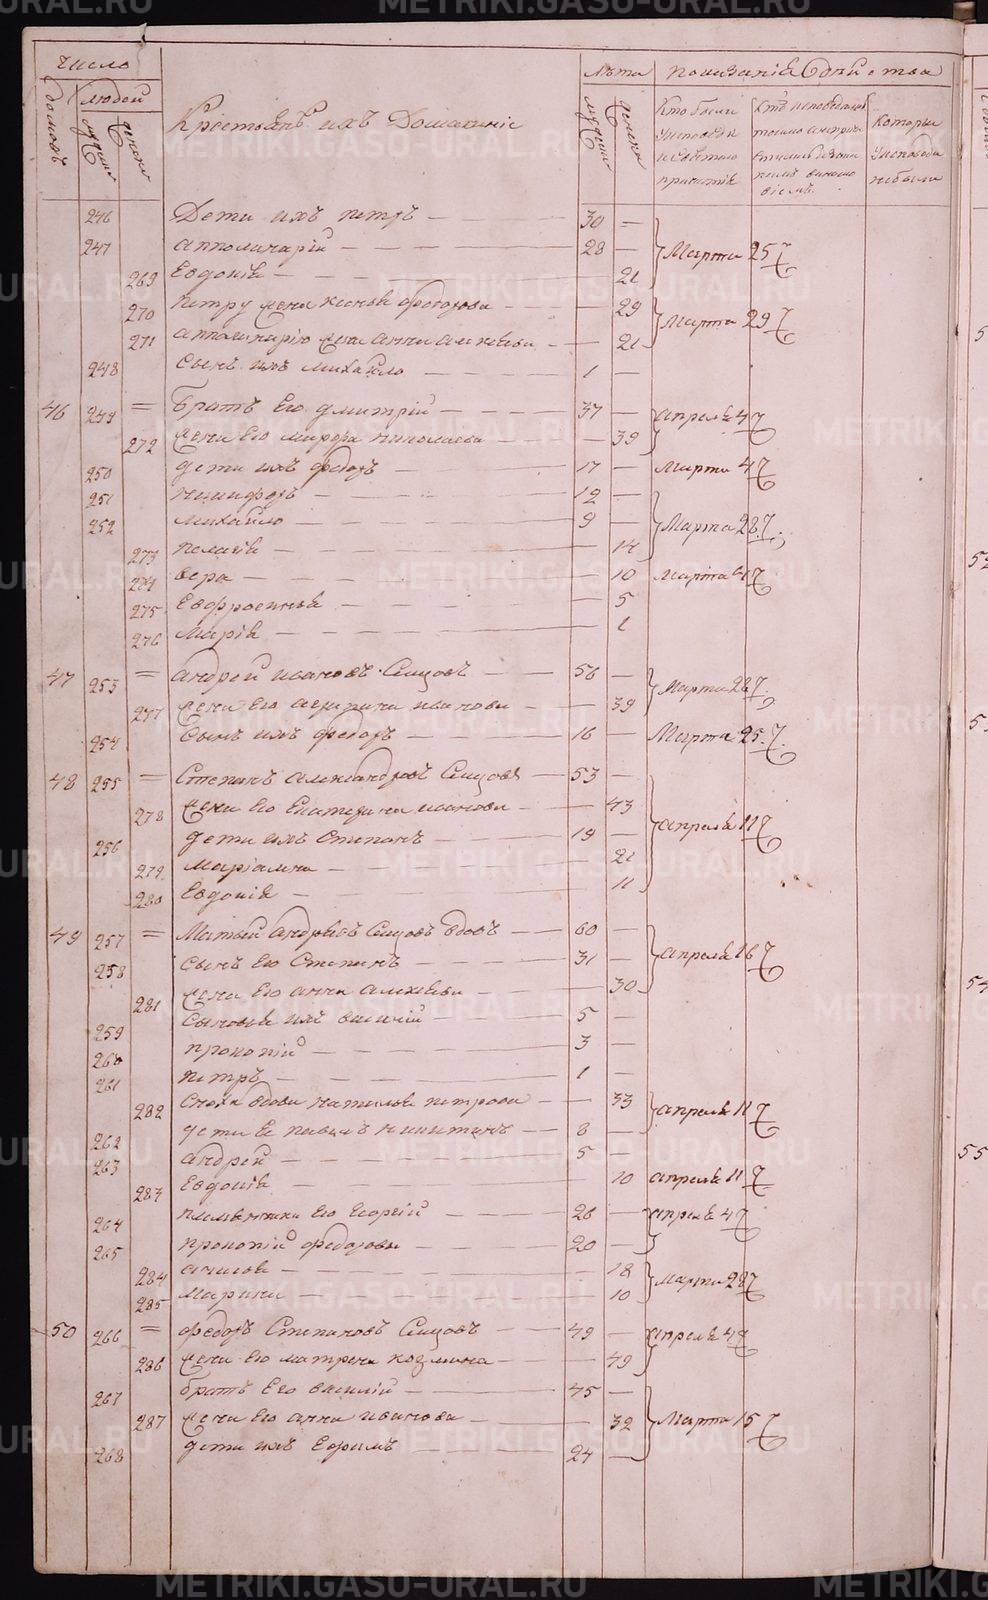 METRIKI.GASO-URAL.RU
Число
Лѣта
Показанiе
домовъ
людей
мужеска
женска
Крестьянъ ихъ Домашнiе
мужеска
женска
Кто были
исповеди
и святаго
Которыи
у исповеди
небыли
246 Дети ихъ петръ 30
247 апполинарiй 28 Марта 25 7
269 Евдокiя 21
270 петру жена федорова 29 Марта 29 7
271 апполинарiю жена анна алексеева 21
248 Сынъ ихъ михайло 1
46 249 = Братъ Его дмитрiй 37 апреля 4 7
272 жена Его николаева 39
250 дети ихъ федоръ 17 Марта 4 7
251 никифоръ 12
252 михайло 9 Марта 28 7
273 пелагiя 14
274 вера 10 Марта 4 7
275 Евфросинья 5
276 Марiя 1
47 253 = андрей ивановъ Сещовъ 56 Марта 28 7
277 жена Его агрипина иванова 39
254 Сынъ ихъ федоръ 16 Марта 25 7
48 255 = Степанъ александровъ Сещовъ 53
278 жена Его Екатерина иванова 43
256 дети ихъ Степанъ 19 апреля 11 7
279 Марiамна 21
280 Евдокiя 11
49 257 = Матвей андреевъ Сещовъ вдовъ 60
258 Сынъ Его Степанъ 31 апреля 16 7
281 жена Его анна алексеева 30
259 Сыновья ихъ василiй 5
260 прокопiй 3
261 петръ 1
282 Сноха вдова наталья петрова 33 апреля 11 7
262 дети Ея 8
263 андрей 5
283 Евдокiя 10 апреля 11 7
264 племянники Его Георгiй 26 апреля 4 7
265 прокопiй федоровы 20
284 18 Марта 28 7
285 Марина 10
50 266 = федоръ Степановъ Сещовъ 49 апреля 4 7
286 жена Его матрена козмина 49
267 братъ Его василiй 45
287 жена Его анна иванова 32 Марта 15 7
268 дети ихъ Ефимъ 24